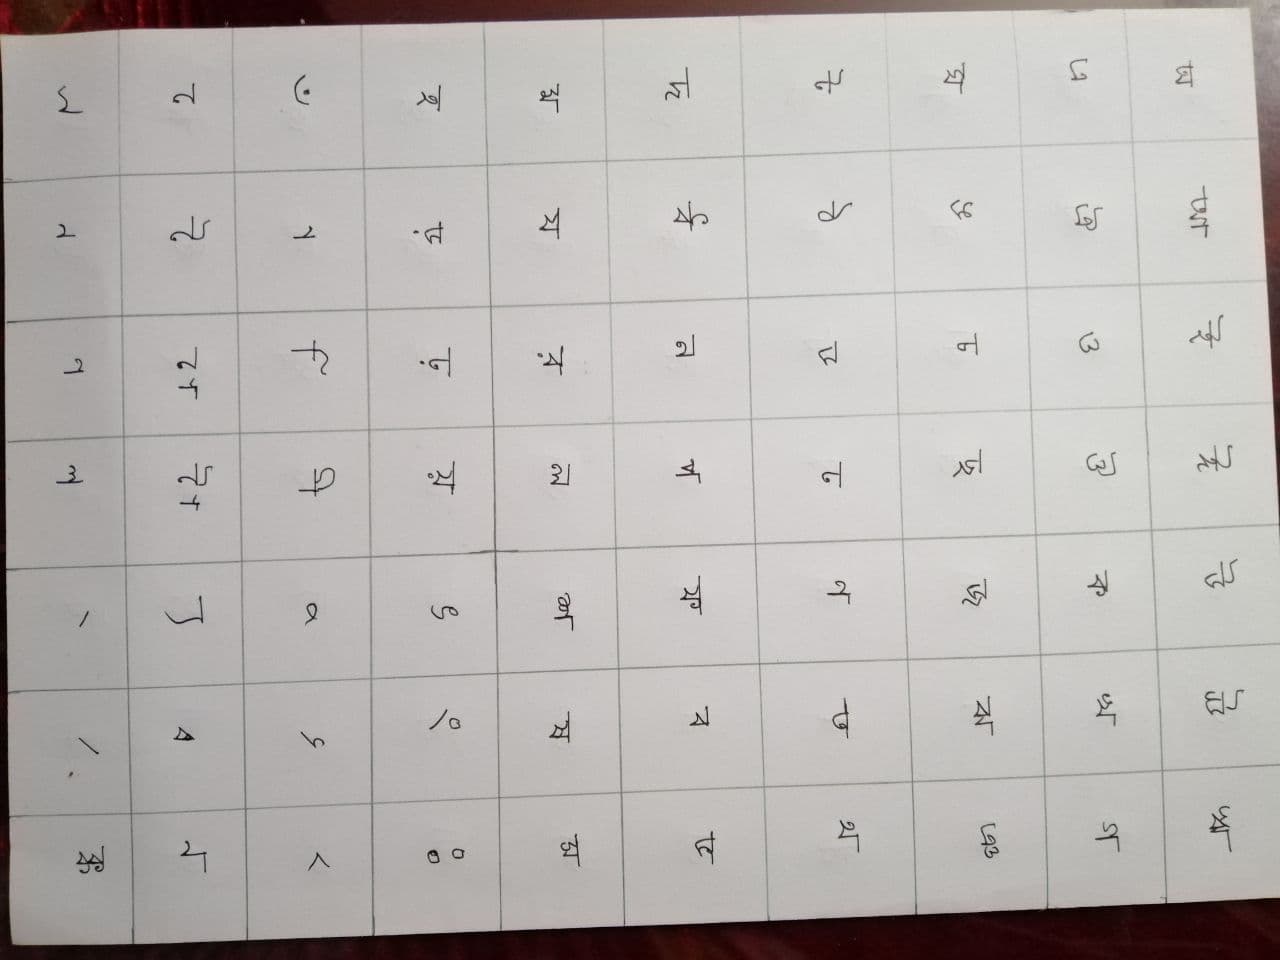 অ আ ই ঈ উ ঊ ঋ
এ ঐ ও ঔ ক খ গ
ঘ ঙ চ ছ জ ঝ ঞ
ট ঠ ড ঢ ণ ত থ
দ র্ধ ন প ফ ব ভ
ম য র ল শ ষ স
হ ড় ঢ় য় ৎ ং ঃ
ঁ া ি ী ু ূ ৃ
ে ৈ ো ৌ
ক্ক